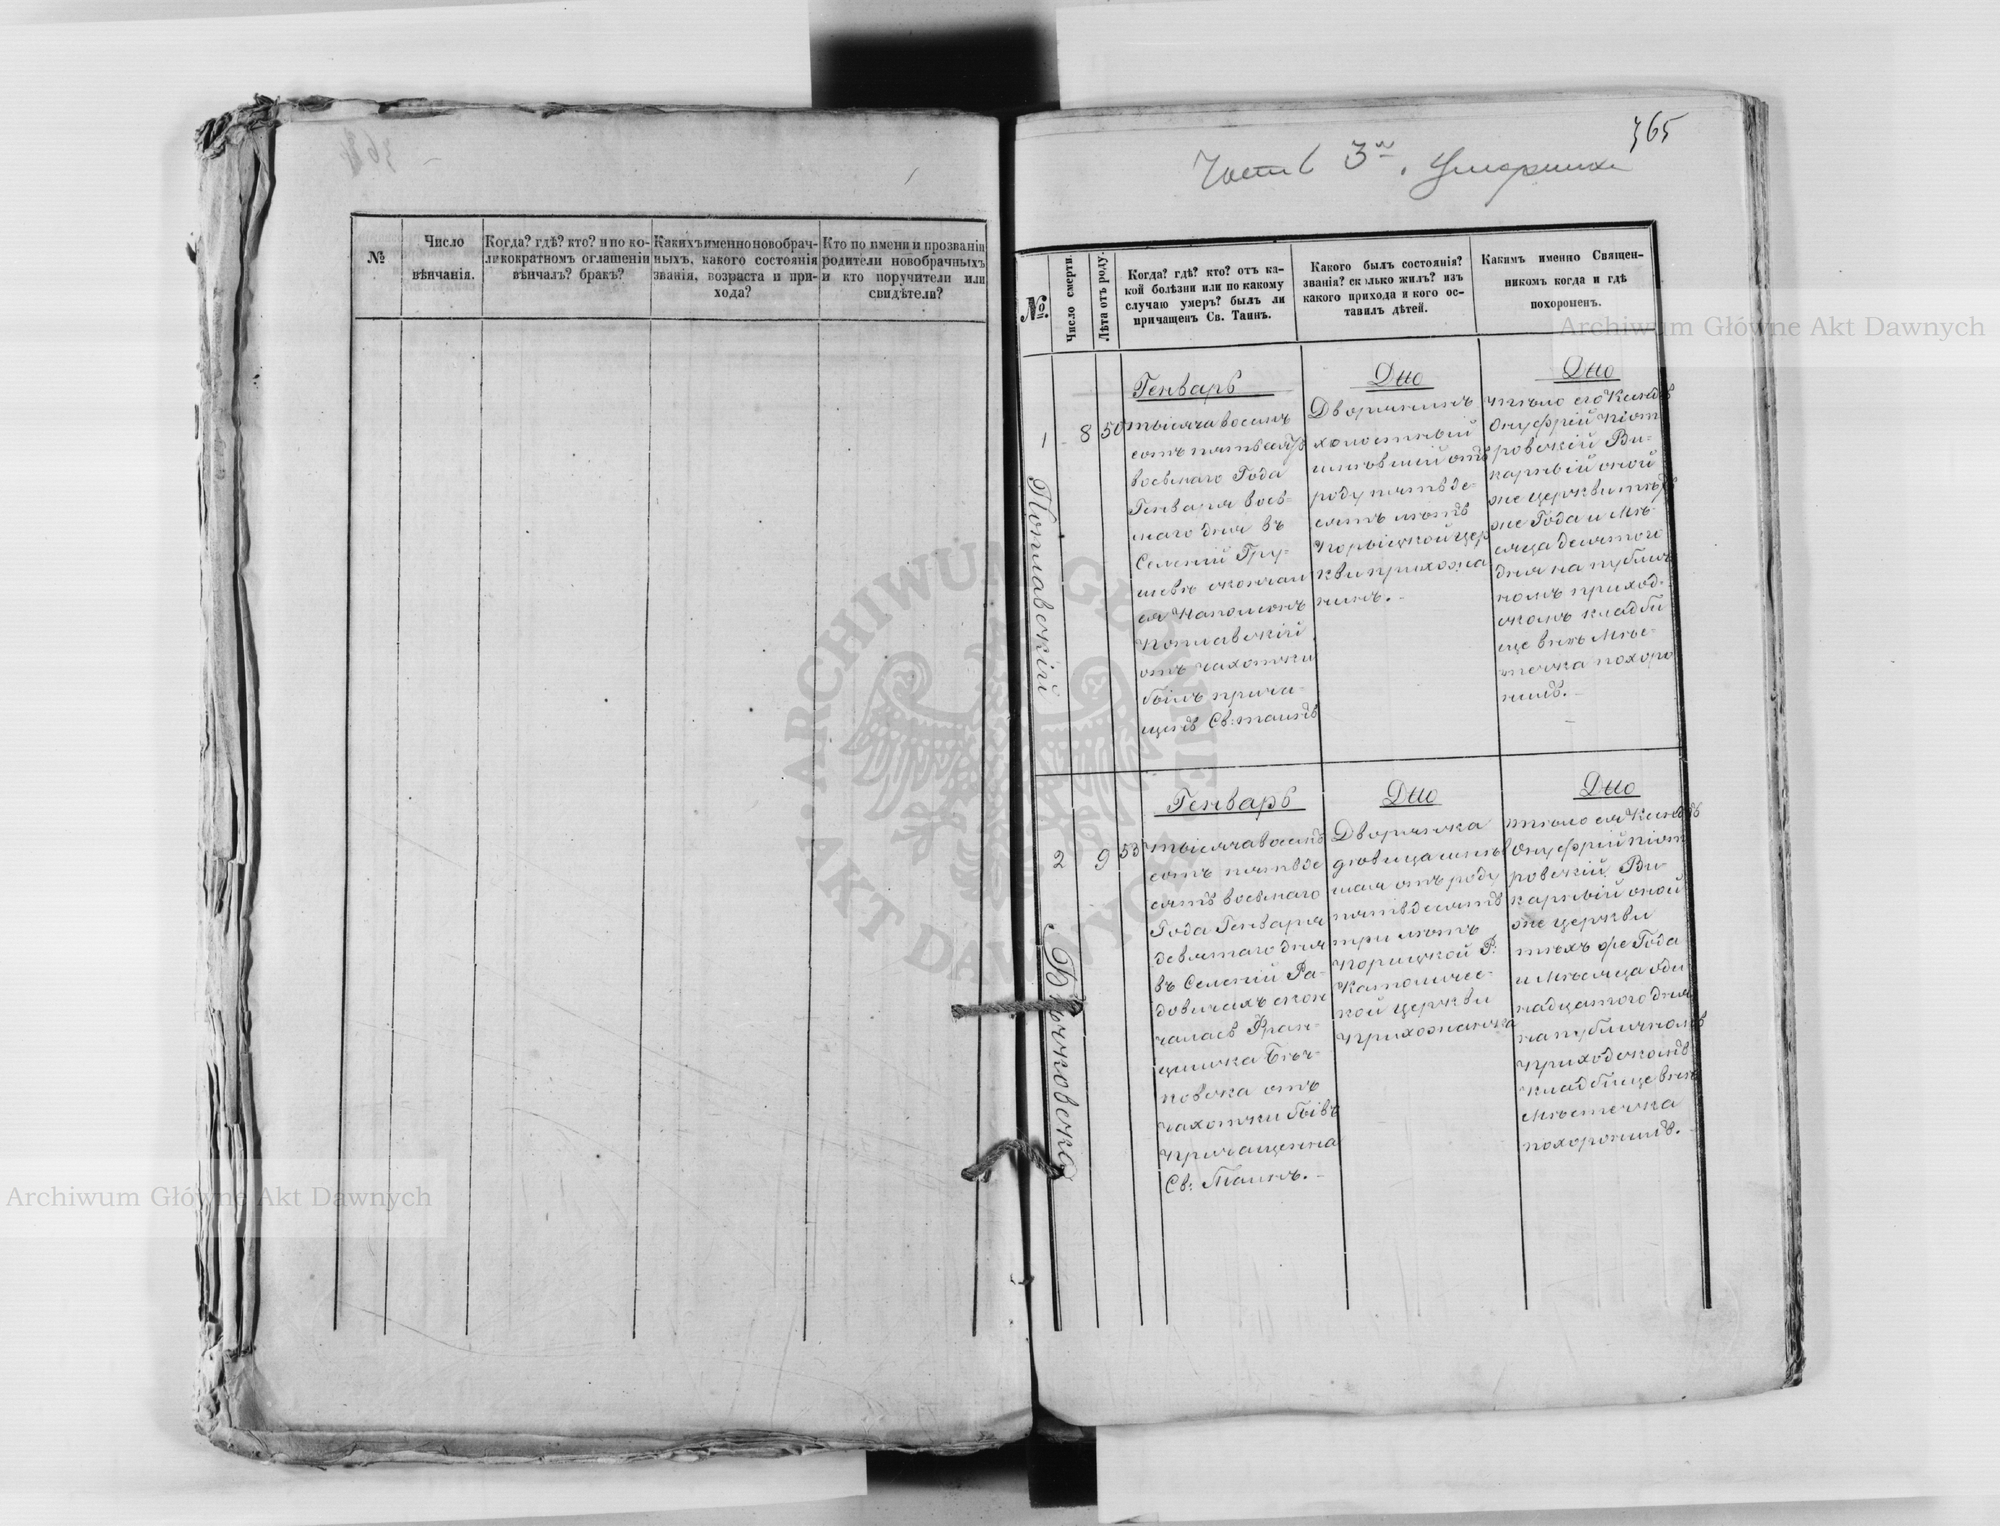 364
№
Число
вѣнчанія.
Когда? гдѣ? кто? и по ко-
ликократномъ оглашеніи
вѣнчалъ? бракъ?
Какихъ именно новобрач-
ныхъ, какого состоянія
званія, возраста и при-
хода?
Кто по имени и прозванію
родители новобрачныхъ
и кто поручители или
свидѣтели?
365
Часть 3я. Умершихъ
№.
Число смерти.
Лѣта отъ роду.
Когда? гдѣ? кто? отъ ка-
кой болѣзни или по какому
случаю умеръ? былъ ли
причащенъ Св. Таинъ.
Какого былъ состоянія?
званія? сколько жилъ? изъ
какого прихода и кого ос-
тавилъ дѣтей.
Какимъ именно Священ-
никомъ когда и гдѣ
похороненъ.
1
Поплавскій
8
50
Генварь
тысяча восемь
сотъ пятьдесятъ
восьмаго Года
Генваря вось-
маго дня въ
Селеніи Гру-
шевѣ скончал
ся Наполеонъ
Поплавскій
отъ чахотки
былъ прича-
щенъ Св: таинъ
Дто
Дворянинъ
холостый
имѣвшій отъ
роду пятьде-
сятъ лѣтъ
Порыцкой цер
кви прихожа
нинъ.
Дто
тѣло его Ксендзъ
Онуфрій Піот
ровскій Ви-
карный оной
же церкви тѣхъ
же Года и Мѣ-
сяца десятого
дня на публич
номъ приход-
скомъ кладби
ще внѣ Мѣс-
течка похоро
нилъ.
2
9
53
Генварь
тысяча восемь
сотъ пятьде
сятъ восьмаго
Года Генваря
девятаго дня
въ Селеніи Ра-
довичахъ скон
чалась Фран-
цишка
отъ
чахотки бывъ
причащенна
Св: Таинъ.
Дто
Дворянка
дѣвица имѣв
шая отъ роду
пятьдесятъ
три лѣтъ
Порицкой Р:
Католичес-
кой церкви
прихожанка
Дто
тѣло ея Ксендзъ
Онуфрій Піот
ровскій Ви-
карный оной
же церкви
тѣхъ же Года
и Мѣсяца оди
надцатого дня
на публичномъ
приходскомъ
кладбище внѣ
Мѣстечка
похоронилъ.
Archiwum Główne Akt Dawnych
Archiwum Główne Akt Dawnych
ARCHIWUM GŁÓWNE AKT DAWNYCH